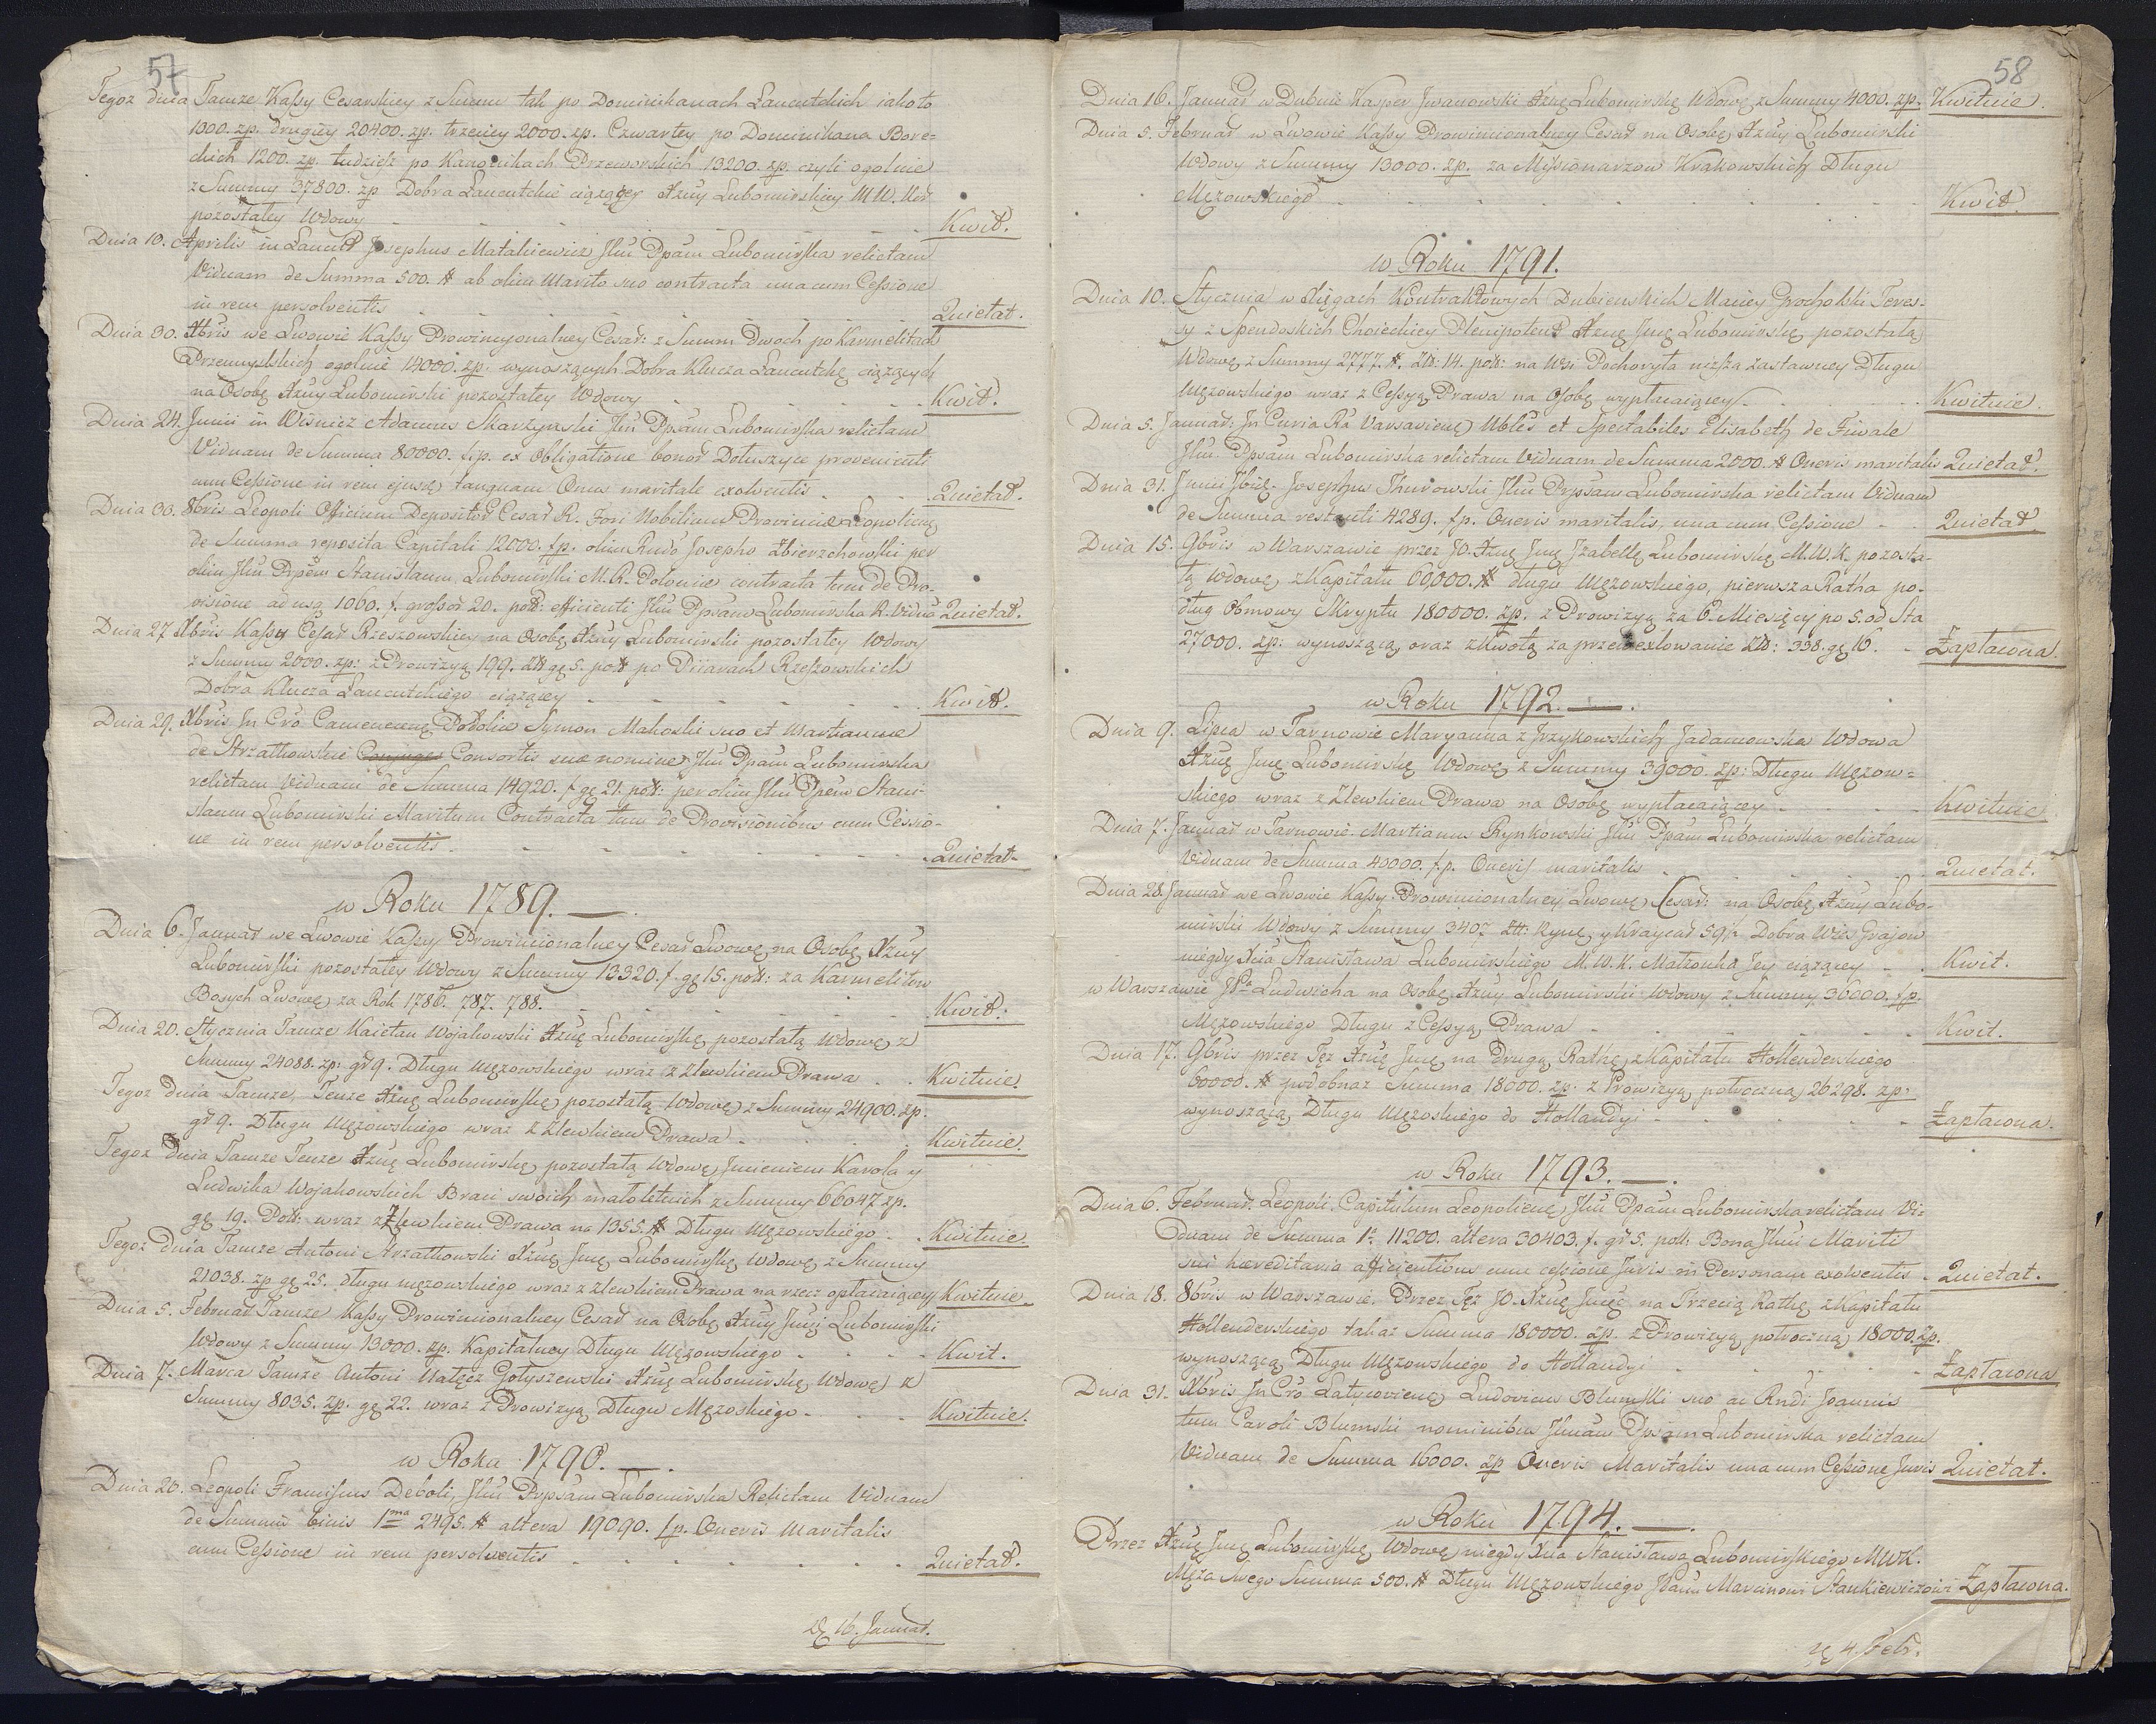 57
Tegoz dnia Tamze Kassy Cesarskiey z Summ tak po Dominikanach Lancutskich iakoto
1000. zp. drugiey 20400. zp. trzeciey 2000. zp. Czwartey po Dominikana Bore=
ckich 1200. zp. tudziesz po Kanonikach Przeworskich 13200. zp. czyli ogolnie
z Summy 37800. zp Dobra Lancutckie ciążącey Xzny Lubomirskiey M W. Kor
pozostałey Wdowy Kwit.
Dnia 10. Aprilis in Lancut Josephus Matakiewicz Jllu Dpam Lubomirska relictam
Viduam de Summa 500. # ab olim Marito suo contracta una cum Cessione
in rem persolventis Quietat.
Dnia 30. Xbris we Lwowie Kassy Prowincyonalney Cesar: z Summ Dwoch po Karmelitach
Przemyslskich ogolnie 14000. zp. wynoszących Dobra Klucza Lancutckę ciążących
na Osobę Xzny Lubomirski pozostałey Wdowy Kwit.
Dnia 24. Junii in Wisnicz Adamus Skarzynski Jllu Dpsam Lubomirska relictam
Viduam de Summa 80000. f.p. ex Obligatione bonor Dotuszyce provenienti
cum Cessione in rem ejusdę tanquam Onus maritale exolventis Quietat.
Dnia 30. 8bris Leopoli Officium Depositor Cesar R. Fori Nobilium Provinciae Leopolieng
de Summa reposita Capitali 12000. fp. olim Rndo Josepho Zbierzchowski per
olim Jllu Prpem Stanislaum Lubomirski M. R. Poloniae contracta tum de Pro-
visione ad usq 1060. f. grossor 20. pol: efficienti Jllu Dpsam Lubomirska R. Vidua Quietat.
Dnia 27 Xbris Kassy Cesar Rzeszowskiey na Osobę Xzny Lubomirski pozostałey Wdowy
z Summy 2000. zp: z Prowizyą 199. zł gę 5. pol po Piiarach Rzeszowskich
Dobra Klucza Lancutckiego ciążącey Kwit.
Dnia 29. Xbris Jn Cro Camenecenę Podoliae Symon Makoski suo et Martianne
de Strzałkowskie Conjuges Consortis suae nomine Jllu Dpam Lubomirska
relictam Viduam de Summa 14920. f gę 21. pol: per olim Jllu Dpem Stani-
slaum Lubomirski Maritum Contracta tum de Provisionibus cum Cessio-
ne in rem persolventis. Quietat.
w Roku 1789.
Dnia 6. Januar we Lwowie Kassy Prowincionalney Cesar Lwowę na Osobę Xzny
Lubomirski pozostałey Wdowy z Summy 13320. f. gę 15. pol: za Karmelitow
Bosych Lwowę za Rok 1786. 787. 788. Kwit.
Dnia 20. Stycznia Tamze Kaietan Wojakowski Xznę Lubomirskę pozostałą Wdowę z
Summy 24088. zp: gr 9. Długu Męzowskiego wraz z Zlewkiem Prawa Kwituie.
Tegoz dnia Tamze Tenze Xznę Lubomirskę pozostałą Wdowę z Summy 24900. zp.
gr 9. Długu Męzowskiego wraz z Zlewkiem Prawa Kwituie.
Tegoz dnia Tamze Tenze Xznę Lubomirskę pozostałą Wdowę Jmieniem Karola y
Ludwika Wojakowskich Braci swoich małoletnich z Summy 66047 zp.
gę 19. Pol: wraz z Zlewkiem Prawa na 1355. # Długu Męzowskiego Kwituie.
Tegoz dnia Tamze Antoni Strzałkowski Xznę Jmę Lubomirskę Wdowę z Summy
21038. zp gę 25. długu męzowskiego wraz z zlewkiem Prawa na rzecz opłacaiącey Kwituie.
Dnia 5. Februar Tamze Kassy Prowincionalney Cesar na Osobę Xzny Jmęi Lubomirski
Wdowy z Summy 13000. zp. Kapitalney Długu Męzowskiego Kwit.
Dnia 7. Marca Tamze Antoni Nałęcz Gołyszewski Xznę Lubomirskę Wdowę z
Summy 8035. zp. gę 22. wraz z Prowizyą Długu Męzoskiego Kwituie.
w Roku 1790.
Dnia 20. Leopoli Franciscus Deboli Jllu Prpsam Lubomirska Relictam Viduam
de Summis binis 1ma 2495. # altera 19090. fp. Oneris Maritalis
cum Cessione in rem persolventis Quietat.
dę 16. Januar.
58
Dnia 16. Januar w Dubnie Kasper Jwanowski Xznę Lubomirskę Wdowę z Summy 4000. zp. Kwituie.
Dnia 5. Februar w Lwowie Kassy Prowincionalney Cesar na Osobę Xzny Lubomirski
Wdowy z Summy 13000. zp. za Missionarzow Krakowskich Długu
Męzowskiego Kwit.
w Roku 1791.
Dnia 10. Stycznia w Xięgach Kontraktowych Dubienskich Maciey Grocholski Teres-
sy z Spendoskich Choieckiey Plenipotent Xznę Jmę Lubomirskę pozostałą
Wdowę z Summy 2777. #. Zł: 14. pol: na Wsi Pochoryła nizsza Zastawney Długu
Męzowskiego wraz z Cessyą Prawa na Osobę wypłacaiącey Kwituie.
Dnia 5. Januar. Jn Curia Ra Varsavienę Nbles et Spectabiles Elisabeth de Fivale
Jllu Dpsam Lubomirska relictam Viduam de Summa 2000. # Oneris maritalis Quietat.
Dnia 31. Junii Jbidę. Josephus Thurowski Jllu Prpsam Lubomirska relictam Viduam
de Summa restanti 4289. fp. Oneris maritalis, una cum Cessione Quietat
Dnia 15. 9bris w Warszawie przez JO. Xznę Jmę Jzabellę Lubomirskę M.W.K. pozosta-
łą Wdowę, z Kapitału 60,000. # długu Męzowskiego, pierwsza Ratha po-
dług Obmowy Skryptu 180000. zp. z Prowizyą za 6. Miesięcy po 5. od Sta
27000. zp: wynoszącą, oraz z Kwotą za przewexlowanie Zł: 338. gę 16. Zapłacona.
w Roku 1792.
Dnia 9. Lipca w Tarnowie Maryanna z Jrzykowskich Jadamowska Wdowa
Xznę Jmę Lubomirskę Wdowę z Summy 39000. zp: Długu Męzow=
skiego wraz z Zlewkiem Prawa na Osobę wypłacaiącey Kwituie
Dnia 7. Januar w Tarnowie. Martianus Rynkowski Jllu Dpam Lubomirska relictam
Viduam de Summa 40000. f.p. Oneris maritalis Quietat.
Dnia 28. Januar we Lwowie Kassy Prowincionalney Lwowę Cesar: na Osobę Xzny Lubo-
mirski Wdowy z Summy 3407. Zł: Rynę y Kraycar 59½ Dobra Wies Grajow
niegdy Xcia Stanisława Lubomirskiego M. W. K. Małzonka Jey ciążącey Kwit.
w Warszawie Ludwicha na Osobę Xzny Lubomirski Wdowy z Summy 36000. fp.
Męzowskiego Długu z Cessyą Prawa Kwit.
Dnia 17. 9bris przez Tęz Xznę Jmę na drugą Rathę, z Kapitału Hollenderskiego
60000. # podobnaz Summa 18000. zp. z Prowizyą połroczną 26298. zp:
wynoszącą, Długu Męzoskiego do Hollandyi Zapłacona.
w Roku 1793.
Dnia 6. Februar. Leopoli. Capitulum Leopolienę Jllu Dpam Lubomirska relictam Vi=
duam de Summa 1a 11200. altera 30403. f. gr 5. pol: Bona Jllui Mariti
sui haereditaria afficientibus cum cessione Juris in Personam exolventis Quietat.
Dnia 18. 8bris w Warszawie. Przez Tęz JO. Xznę Jmęć na Trzecią Rathę z Kapitału
Hollenderskiego takaz Summa 180000. zp. z Prowizyą połroczną 18000. zp.
wynoszącą Długu Męzowskiego do Hollandyi Zapłacona
Dnia 31. Xbris Jn Cro Latycovienę Ludovicus Blumski suo ac Rndi Joannis
tum Caroli Blumski nominibus Jllnam Dpsam Lubomirska relictam
Viduam de Summa 16000. zp Oneris Maritalis una cum Cessione Juris Quietat.
w Roku 1794.
Przez Xznę Jmę Lubomirskę Wdowę niegdy Xcia Stanisława Lubomirskiego MWK.
Męza Swego Summa 500. # Długu Męzowskiego JPanu Marcinowi Stankiewiczowi Zapłacona.
dę 4 Febr.